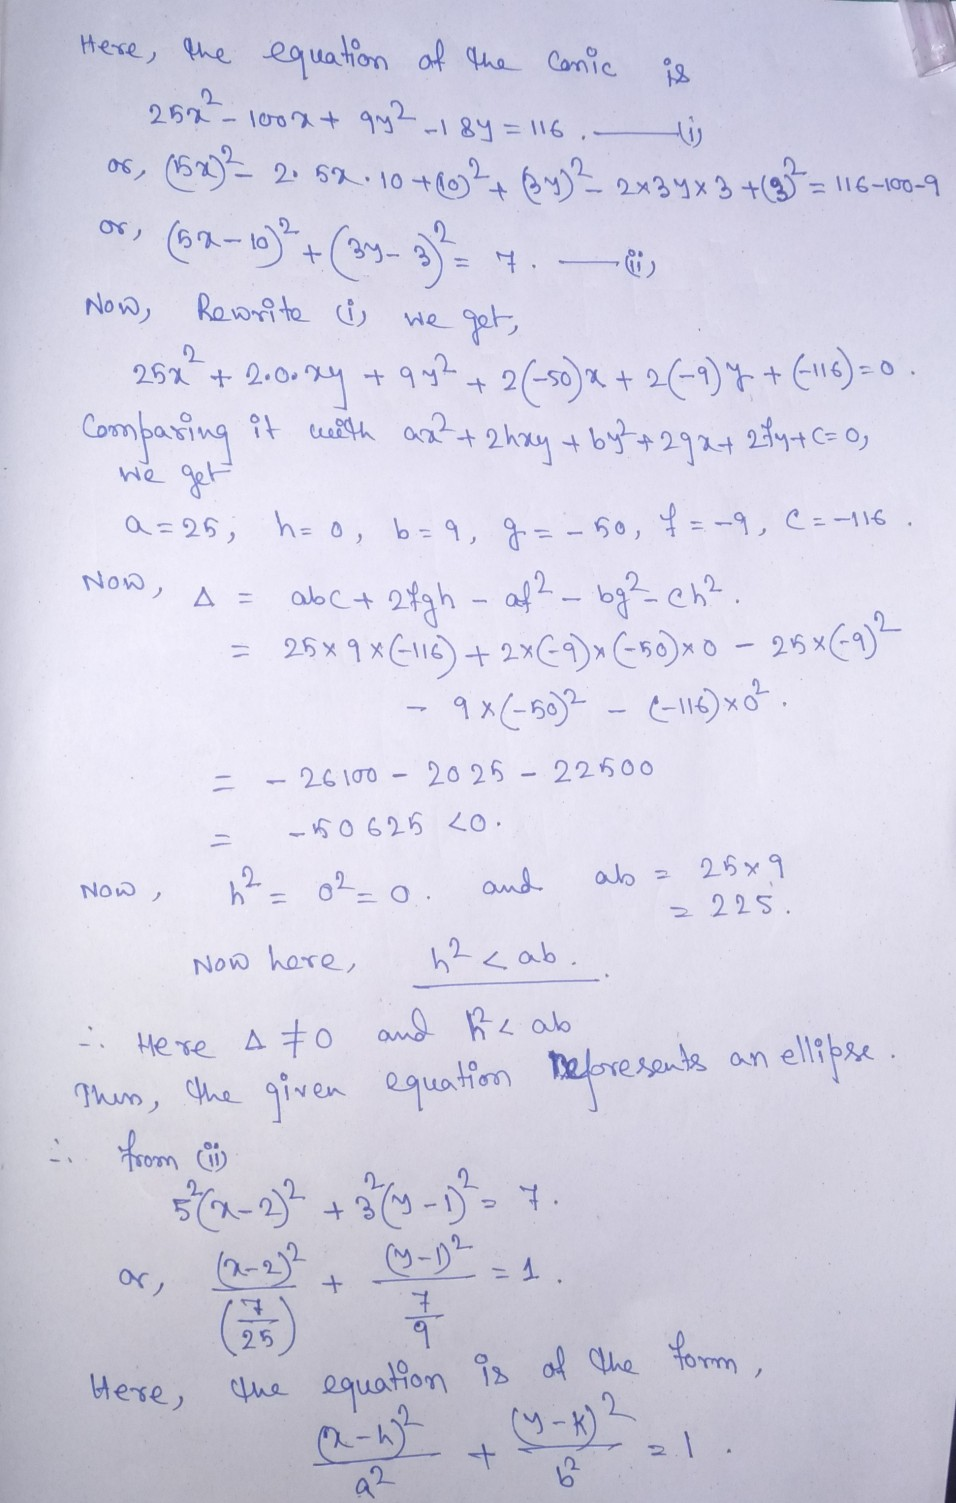 Here, the equation of the conic is
25x² - 100x + 9y² - 18y = 116. — (i)
or, (5x)² - 2. 5x. 10 + (10)² + (3y)² - 2×3y×3 + (3)² = 116-100-9
or, (5x - 10)² + (3y - 3)² = 7. — (ii)
Now, Rewrite (i) we get,
25x² + 2.0.xy + 9y² + 2(-50)x + 2(-9)y + (-116) = 0.
Comparing it with ax² + 2hxy + by² + 2gx + 2fy + c = 0,
we get
a = 25, h = 0, b = 9, g = -50, f = -9, C = -116.
Now, Δ = abc + 2fgh - af² - bg² - ch².
= 25×9×(-116) + 2×(-9)×(-50)×0 - 25×(-9)²
- 9×(-50)² - (-116)×0².
= - 26100 - 2025 - 22500
= -50625 <0.
Now, h² = 0² = 0. and ab = 25×9
= 225.
Now here, h² < ab.
∴ Here Δ ≠ 0 and h² < ab
Thus, the given equation Represents an ellipse.
∴ from (ii)
5²(x-2)² + 3²(y-1)² = 7.
or, (x-2)²/(7/25) + (y-1)²/(7/9) = 1.
Here, the equation is of the form,
(x-h)²/a² + (y-k)²/b² = 1.